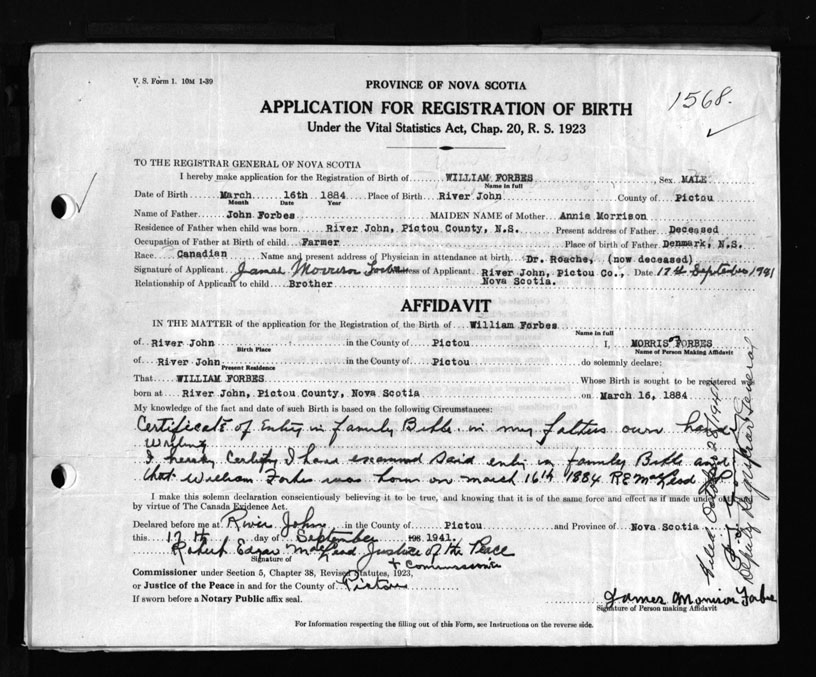 V. S. Form 1. 10M 1-39
1568.
PROVINCE OF NOVA SCOTIA
APPLICATION FOR REGISTRATION OF BIRTH
Under the Vital Statistics Act, Chap. 20, R. S. 1923
TO THE REGISTRAR GENERAL OF NOVA SCOTIA
I hereby make application for the Registration of Birth of WILLIAM FORBES, Sex MALE
Name in full
Date of Birth March 16th 1884 Place of Birth River John County of Pictou
Month Date Year
Name of Father John Forbes MAIDEN NAME of Mother Annie Morrison
Residence of Father when child was born River John, Pictou County, N.S. Present address of Father Deceased
Occupation of Father at Birth of child Farmer Place of birth of Father Denmark, N.S.
Race Canadian Name and present address of Physician in attendance at birth Dr. Roache, (now deceased)
Signature of Applicant James Morrison Forbes Address of Applicant River John, Pictou Co., Date 17th September 1941
Relationship of Applicant to child Brother Nova Scotia.
AFFIDAVIT
IN THE MATTER of the application for Registration of the Birth of William Forbes
Name in full
of River John in the County of Pictou I, MORRIS FORBES
Birth Place Name of Person Making Affidavit
of River John in the County of Pictou do solemnly declare:
Present Residence
That WILLIAM FORBES Whose Birth is sought to be registered was
born at River John, Pictou County, Nova Scotia on March 16, 1884
My knowledge of the fact and date of such Birth is based on the following Circumstances:
Certificate of Entry in family Bible in my fathers own hand
Writing
I hereby Certify I have examined said entry in family Bible and
that William Forbes was born on march 16th 1884 R E McLeod J P
I make this solemn declaration conscientiously believing it to be true, and knowing that it is of the same force and effect as if made under oath
by virtue of The Canada Evidence Act.
Declared before me at River John in the County of Pictou and Province of Nova Scotia
this 17th day of September 193 1941.
Robert Edgar MacLeod Justice of the Peace
Signature of + Commissioner
Commissioner under Section 5, Chapter 38, Revised Statutes, 1923,
or Justice of the Peace in and for the County of Pictou
If sworn before a Notary Public affix seal.
James Morrison Forbes
Signature of Person making Affidavit
For Information respecting the filling out of this Form, see Instructions on the reverse side.
Filed Oct 28/1941
Deputy Registrar General